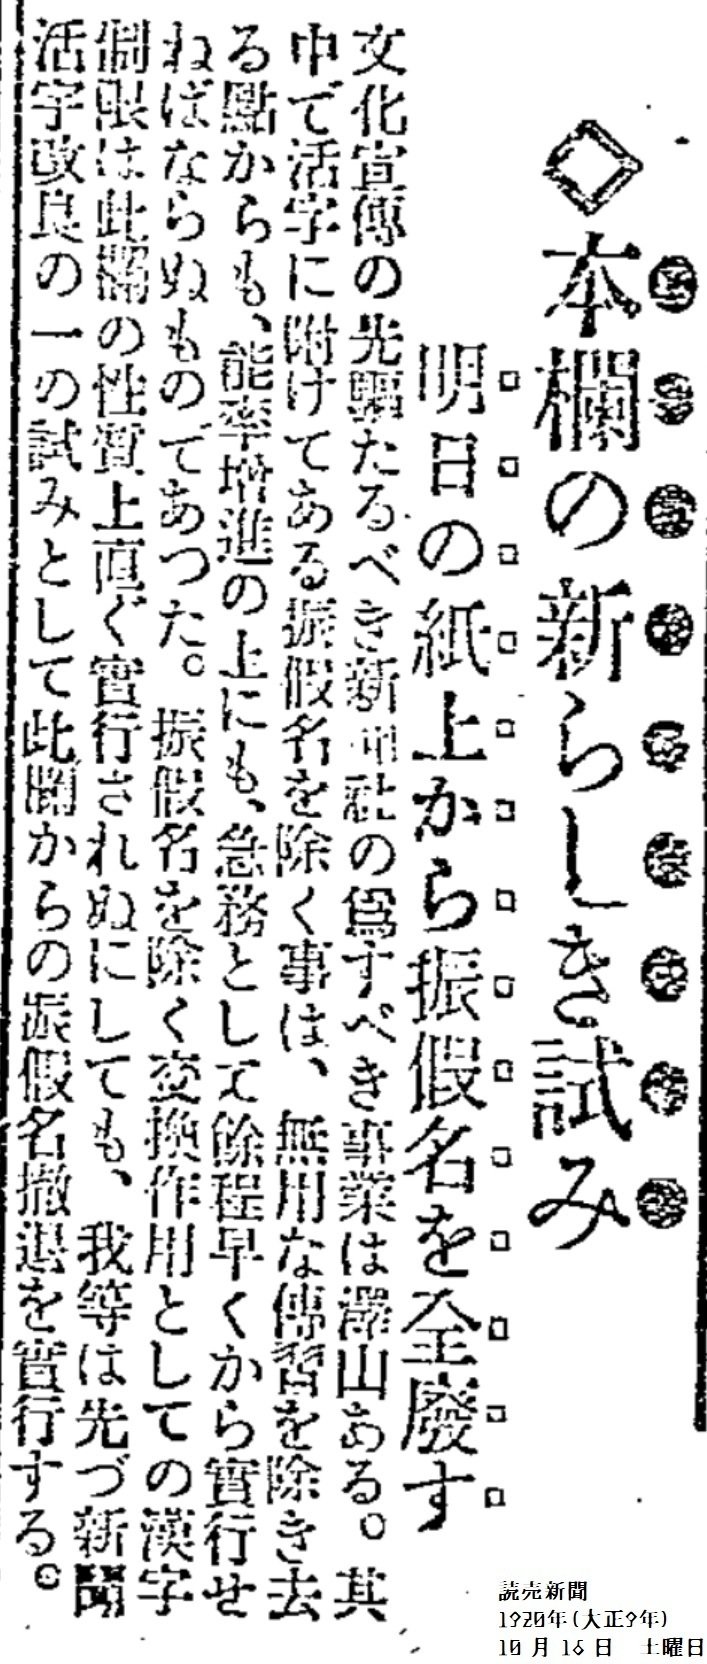 ◇本欄の新らしき試み
明日の紙上から振假名を全廢す
文化宣傳の先驅たるべき新聞社の爲すべき事業は澤山ある。其
中で活字に附けてある振假名を除く事は、無用な傳習を除き去
る點からも、能率增進の上にも、急務として餘程早くから實行せ
ねばならぬものであつた。振假名を除く變換作用としての漢字
制限は此欄の性質上直ぐ實行されぬにしても、我等は先づ新聞
活字改良の一の試みとして此欄からの振假名撤退を實行する。
読売新聞
1920年(大正9年)
10月16日 土曜日